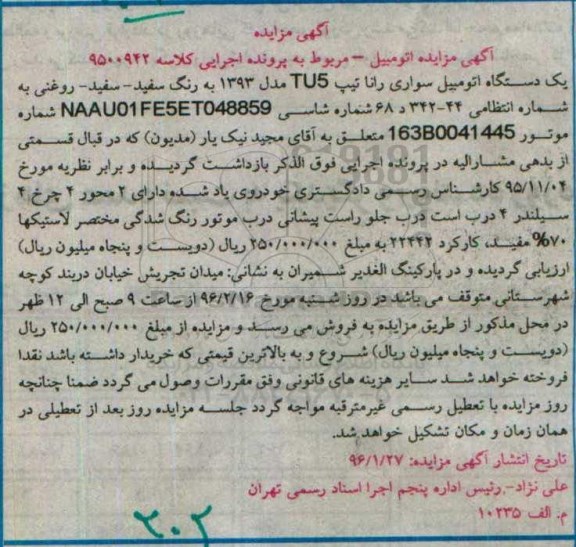 آگهی مزایده
آگهی مزایده اتومبیل – مربوط به پرونده اجرایی کلاسه ۹۵۰۰۹۴۲
یک دستگاه اتومبیل سواری رانا تیپ TU5 مدل ۱۳۹۳ به رنگ سفید- سفید- روغنی به
شماره انتظامی ۴۴-۳۴۲ د ۶۸ شماره شاسی NAAU01FE5ET048859 شماره
موتور 163B0041445 متعلق به آقای مجید نیک یار (مدیون) که در قبال قسمتی
از بدهی مشارالیه در پرونده اجرایی فوق الذکر بازداشت گردیده و برابر نظریه مورخ
۹۵/۱۱/۰۴ کارشناس رسمی دادگستری خودروی یاد شده دارای ۲ محور ۴ چرخ ۴
سیلندر ۴ درب است درب جلو راست پیشانی درب موتور رنگ شدگی مختصر لاستیکها
۷۰% مفید، کارکرد ۲۲۴۴۲ به مبلغ ۲۵۰/۰۰۰/۰۰۰ ریال (دویست و پنجاه میلیون ریال)
ارزیابی گردیده و در پارکینگ الغدیر شمیران به نشانی: میدان تجریش خیابان دربند کوچه
شهرستانی متوقف می باشد در روز شنبه مورخ ۹۶/۲/۱۶ از ساعت ۹ صبح الی ۱۲ ظهر
در محل مذکور از طریق مزایده به فروش می رسد و مزایده از مبلغ ۲۵۰/۰۰۰/۰۰۰ ریال
(دویست و پنجاه میلیون ریال) شروع و به بالاترین قیمتی که خریدار داشته باشد نقدا
فروخته خواهد شد سایر هزینه های قانونی وفق مقررات وصول می گردد ضمنا چنانچه
روز مزایده با تعطیل رسمی غیرمترقبه مواجه گردد جلسه مزایده روز بعد از تعطیلی در
همان زمان و مکان تشکیل خواهد شد.
تاریخ انتشار آگهی مزایده: ۹۶/۱/۲۷
علی نژاد- رئیس اداره پنجم اجرا اسناد رسمی تهران
م. الف ۱۰۲۳۵
۳۰۲